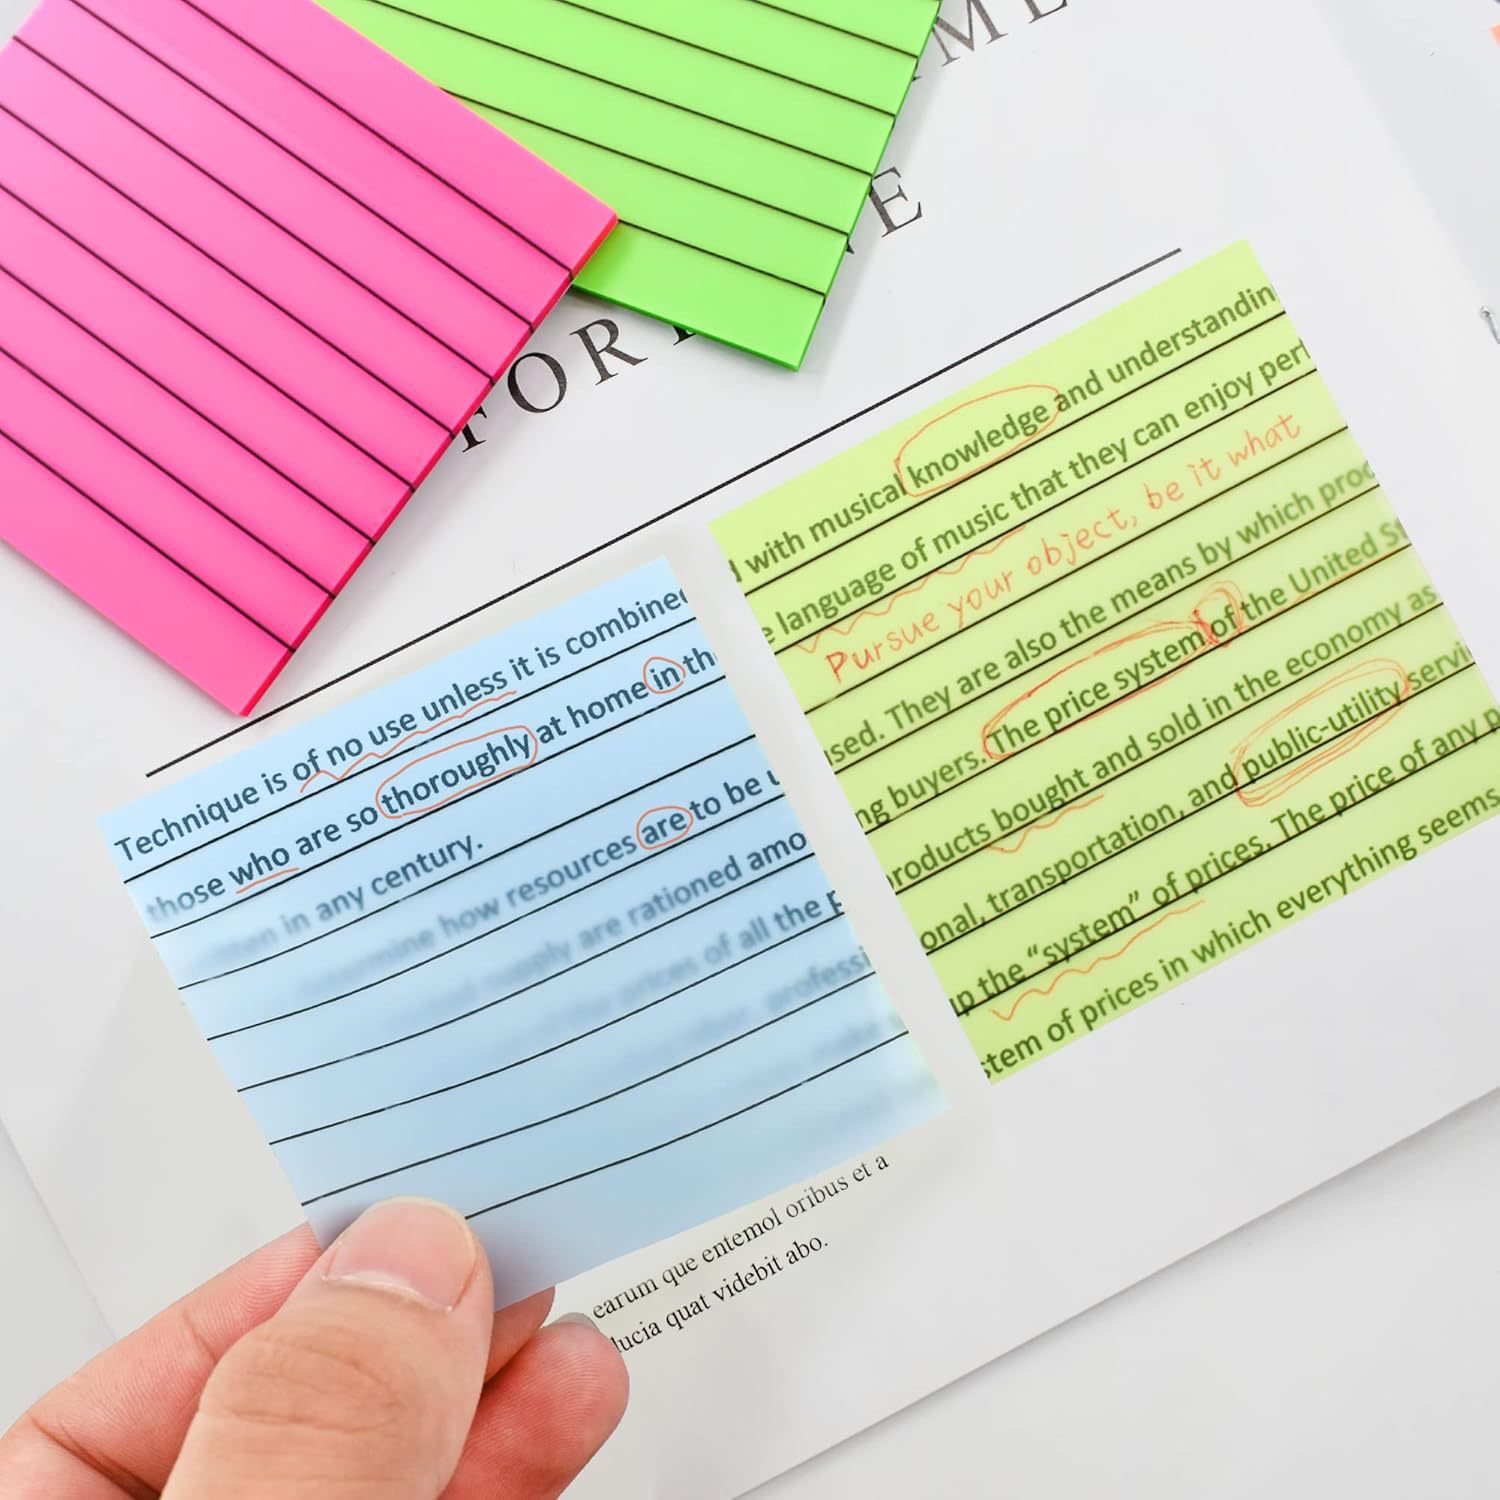 ME
E
FOR
Technique is of no use unless it is combined
those who are so thoroughly at home in th
written in any century.
determine how resources are to be u
and supply are rationed amo
of the prices of all the p
labor, professi
make
d with musical knowledge and understandin
e language of music that they can enjoy perf
Pursue your object, be it what
used. They are also the means by which proc
ng buyers. The price system of the United St
products bought and sold in the economy as
onal, transportation, and public-utility servi
up the “system” of prices. The price of any p
stem of prices in which everything seems
earum que entemol oribus et a
lucia quat videbit abo.